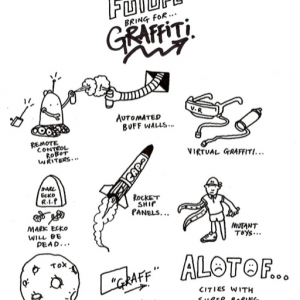 FUTURE
BRING FOR...
GRAFFITI.
REMOTE
CONTROL
ROBOT
WRITERS...
AUTOMATED
BUFF WALLS...
V.R
VIRTUAL GRAFFITI...
MARC
ECKO
R.I.P
MARK ECKO
WILL BE
DEAD...
ROCKET
SHIP
PANELS...
MUTANT
TOYS...
TOX
"GRAFF"
ALOTOF...
CITIES WITH
SUPER BORING